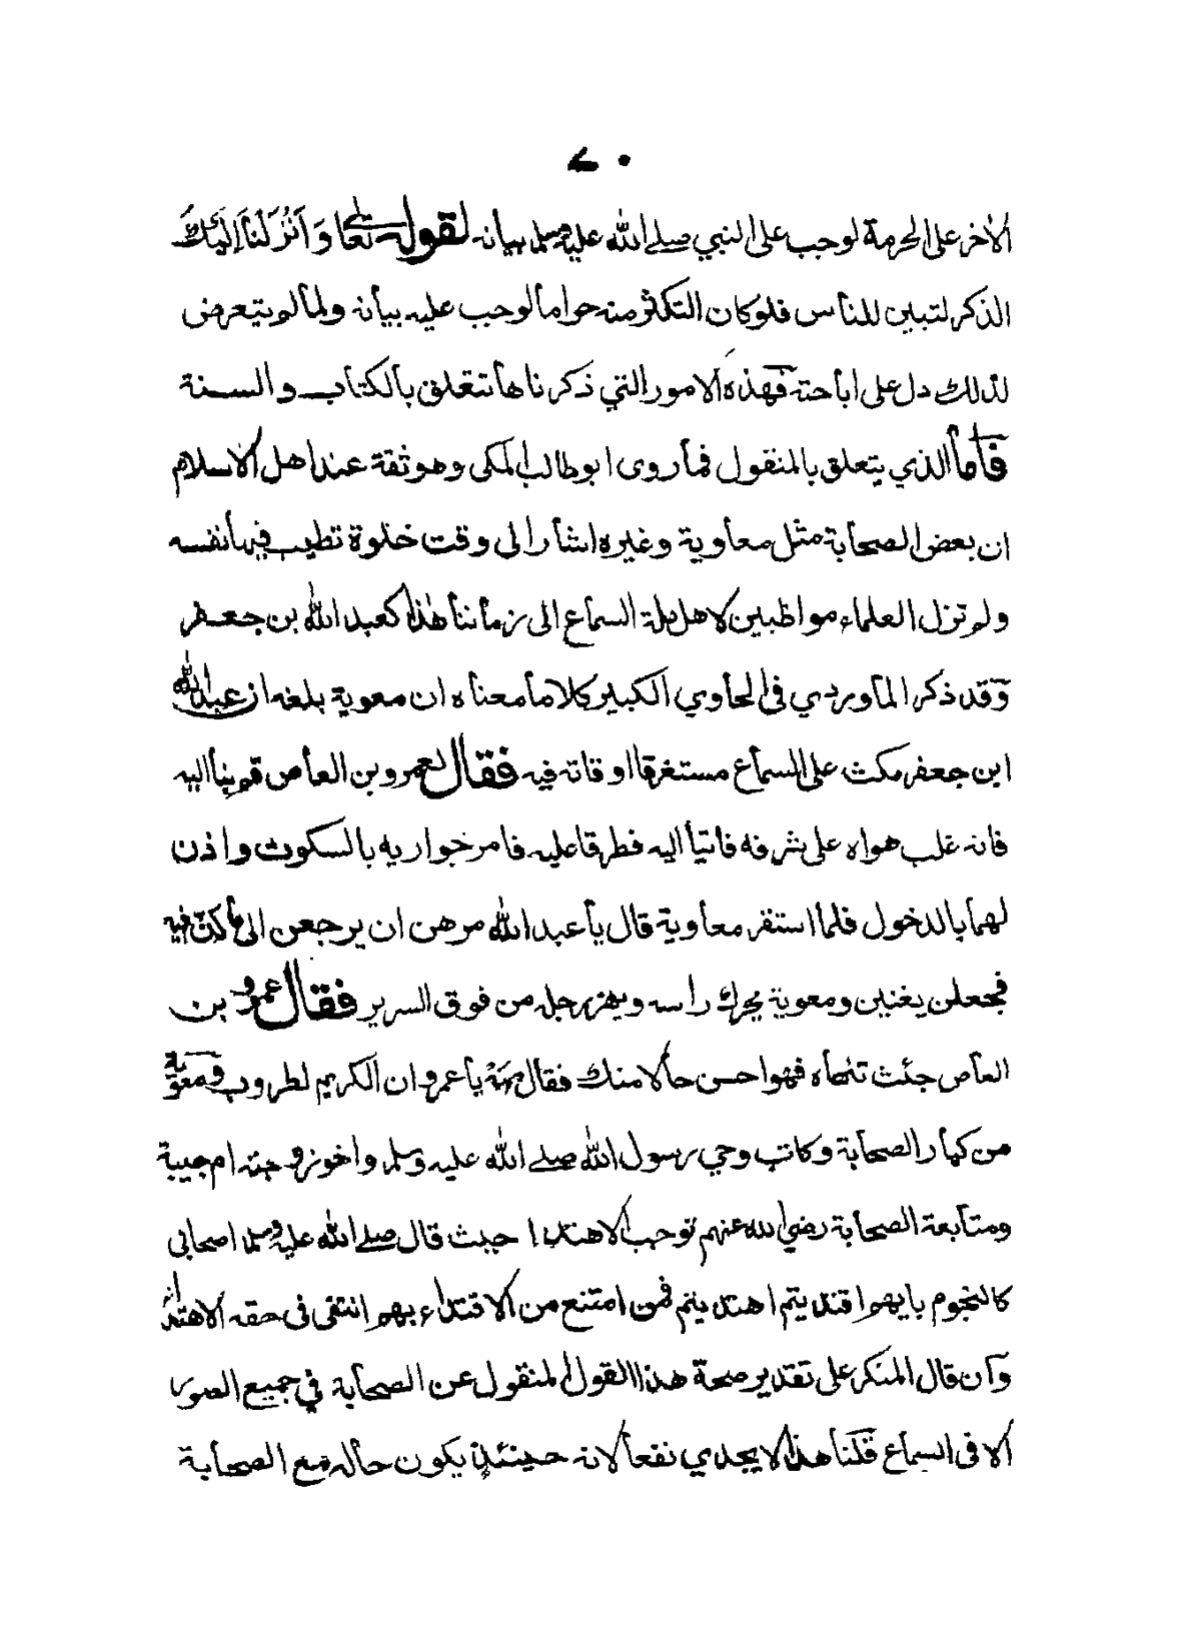 ٧٠
الاخر على الحرمة لوجب على النبي صلى الله عليه وسلم بيانه لقوله تعا وَاَنْزَلْنَا اِلَيْكَ
الذكر لتبين للناس فلو كان التكثر منه حراما لوجب عليه بيانه ولما لم يتعرض
لذلك دل على اباحته فهذه الامور التي ذكرناها تتعلق بالكتاب والسنة
فاما الذي يتعلق بالمنقول فما روى ابو طالب المكى وهو ثقة عند اهل الاسلام
ان بعض الصحابة مثل معاوية وغيره اشارا لى وقت خلوة تطيب فيها نفسه
ولم تزل العلماء مواظبين لاهل ملة السماع الى زماننا هذا كعبد الله بن جعفر
وقد ذكر الماوردي فى الحاوي الكبير كلاما معناه ان معوية بلغه ان عبد الله
ابن جعفر مكث على السماع مستغرقا اوقاته فيه فقال لعمرو بن العاص قم بنا اليه
فانه غلب هواه على شرفه فاتيا اليه فطرقا عليه فامر جواريه بالسكوت واذن
لهما بالدخول فلما استقر معاوية قال يا عبد الله مرهن ان يرجعن الى ما كن فيه
فجعلن يغنين ومعوية يحرك راسه ويهز برجله من فوق السرير فقال عمرو بن
العاص جئت تنهاه فهو احسن حالا منك فقال مه يا عمرو ان الكريم لطروب فمعوية
من كبار الصحابة وكاتب وحي رسول الله صلى الله عليه وسلم واخو زوجته ام حبيبة
ومتابعة الصحابة رضي الله عنهم توجب الاهتدا حيث قال صلى الله عليه وسلم اصحابى
كالنجوم بايهم اقتديتم اهتديتم فمن امتنع من الاقتداء بهم انتفى فى حقه الاهتداء
وان قال المنكر على تقدير صحة هذا القول المنقول عن الصحابة في جميع الصور
الا فى السماع قلنا هذا لا يجدي نفعا لانه حينئذ يكون حاله مع الصحابة